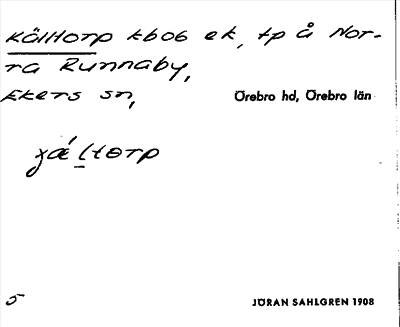 Källtorp kbo6 ek, tp å Nor-
ra Runnaby,
Ekers sn,
Örebro hd, Örebro län
χǽltorp
5
JÖRAN SAHLGREN 1908